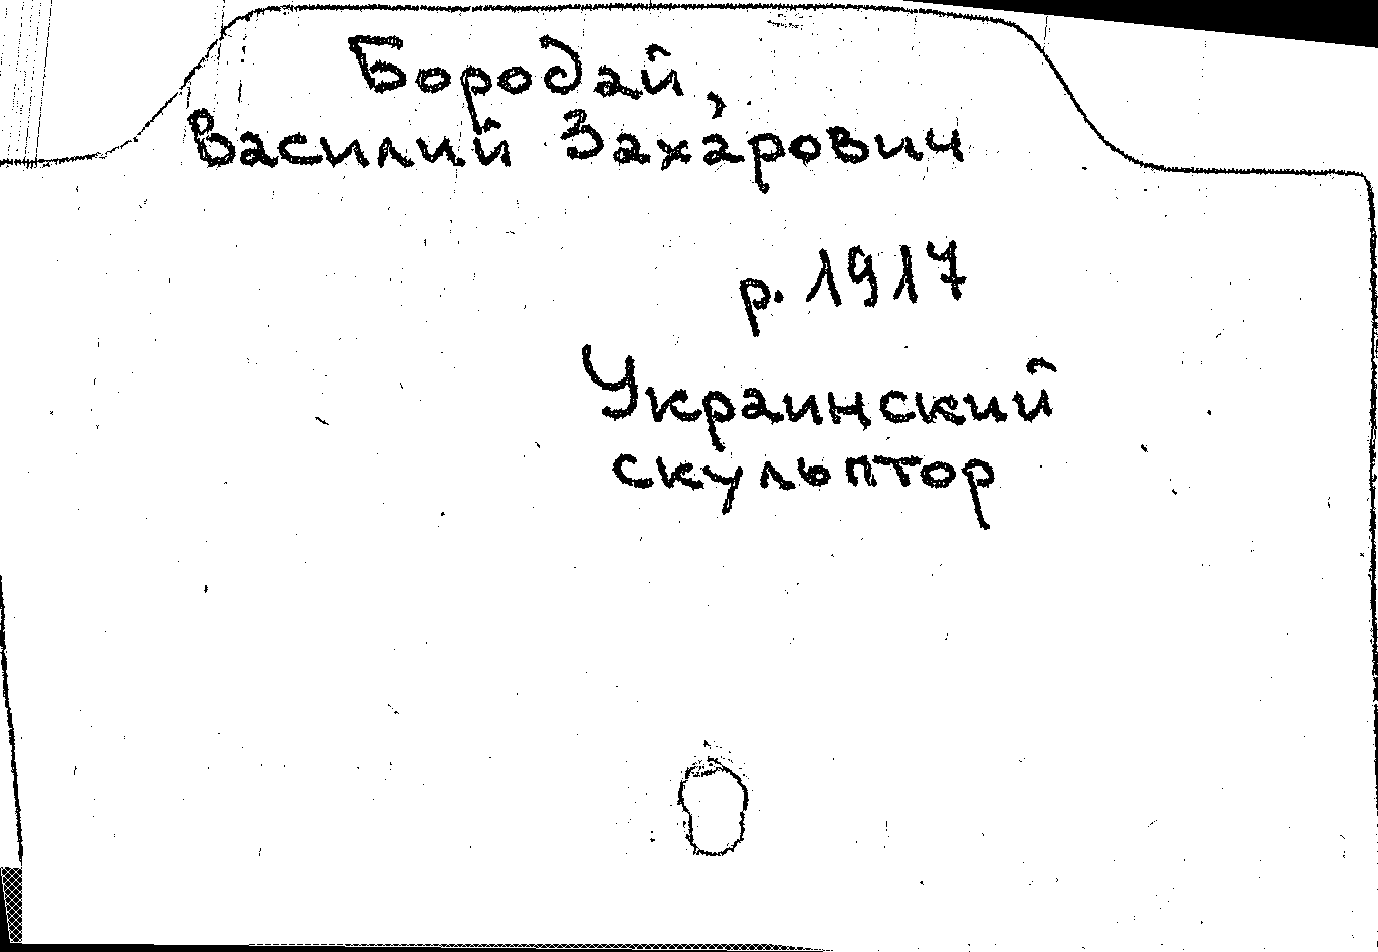 Бородай,
Василий Захарович
р. 1917
Украинский
скульптор